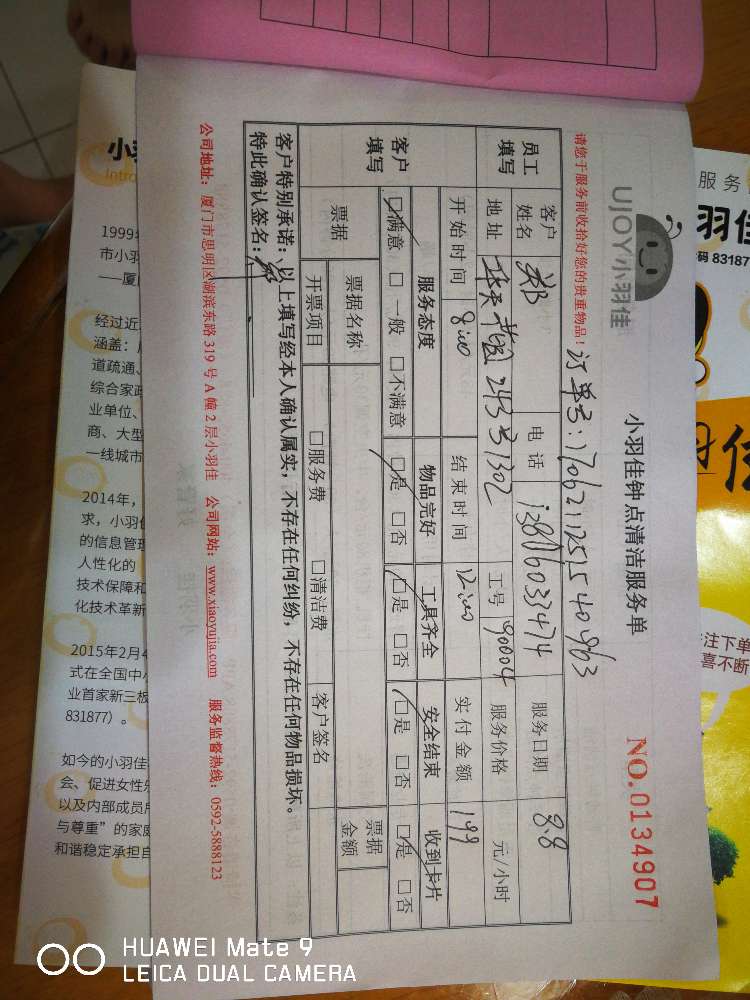 UJOY小羽佳
小羽佳钟点清洁服务单
NO.0134907
请您于服务前收拾好您的贵重物品！
员工填写
客户姓名 郑 电话 服务日期 8.8
地址 工号 90004 服务价格 元/小时
开始时间 8:00 结束时间 12:00 实付金额 199
客户填写
服务态度 物品完好 工具齐全 安全结束 收到卡片
□满意 □一般 □不满意 □是 □否 □是 □否 □是 □否 □是 □否
票据 票据名称 票据金额
开票项目 □服务费 □清洁费 客户签名
客户特别承诺：以上填写经本人确认属实，不存在任何纠纷，不存在任何物品损坏。
特此确认签名：
公司地址：厦门市思明区湖滨东路 319 号 A 幢 2 层小羽佳 公司网站：www.xiaoyujia.com 服务监督热线：0592-5888123
小
Intro
1999年
市小羽
——厦
经过近
涵盖：
道疏通、
综合家政
业单位、
商、大型
一线城市
2014年，
求，小羽佳
的信息管理
人性化的
技术保障和
化技术革新
2015年2月4
式在全国中小
业首家新三板
831877）。
如今的小羽佳
会、促进女性
以及内部成员
与尊重”的家庭
和谐稳定承担自
服务
羽佳
码 83187
佳
注下单
喜不断
HUAWEI Mate 9
LEICA DUAL CAMERA